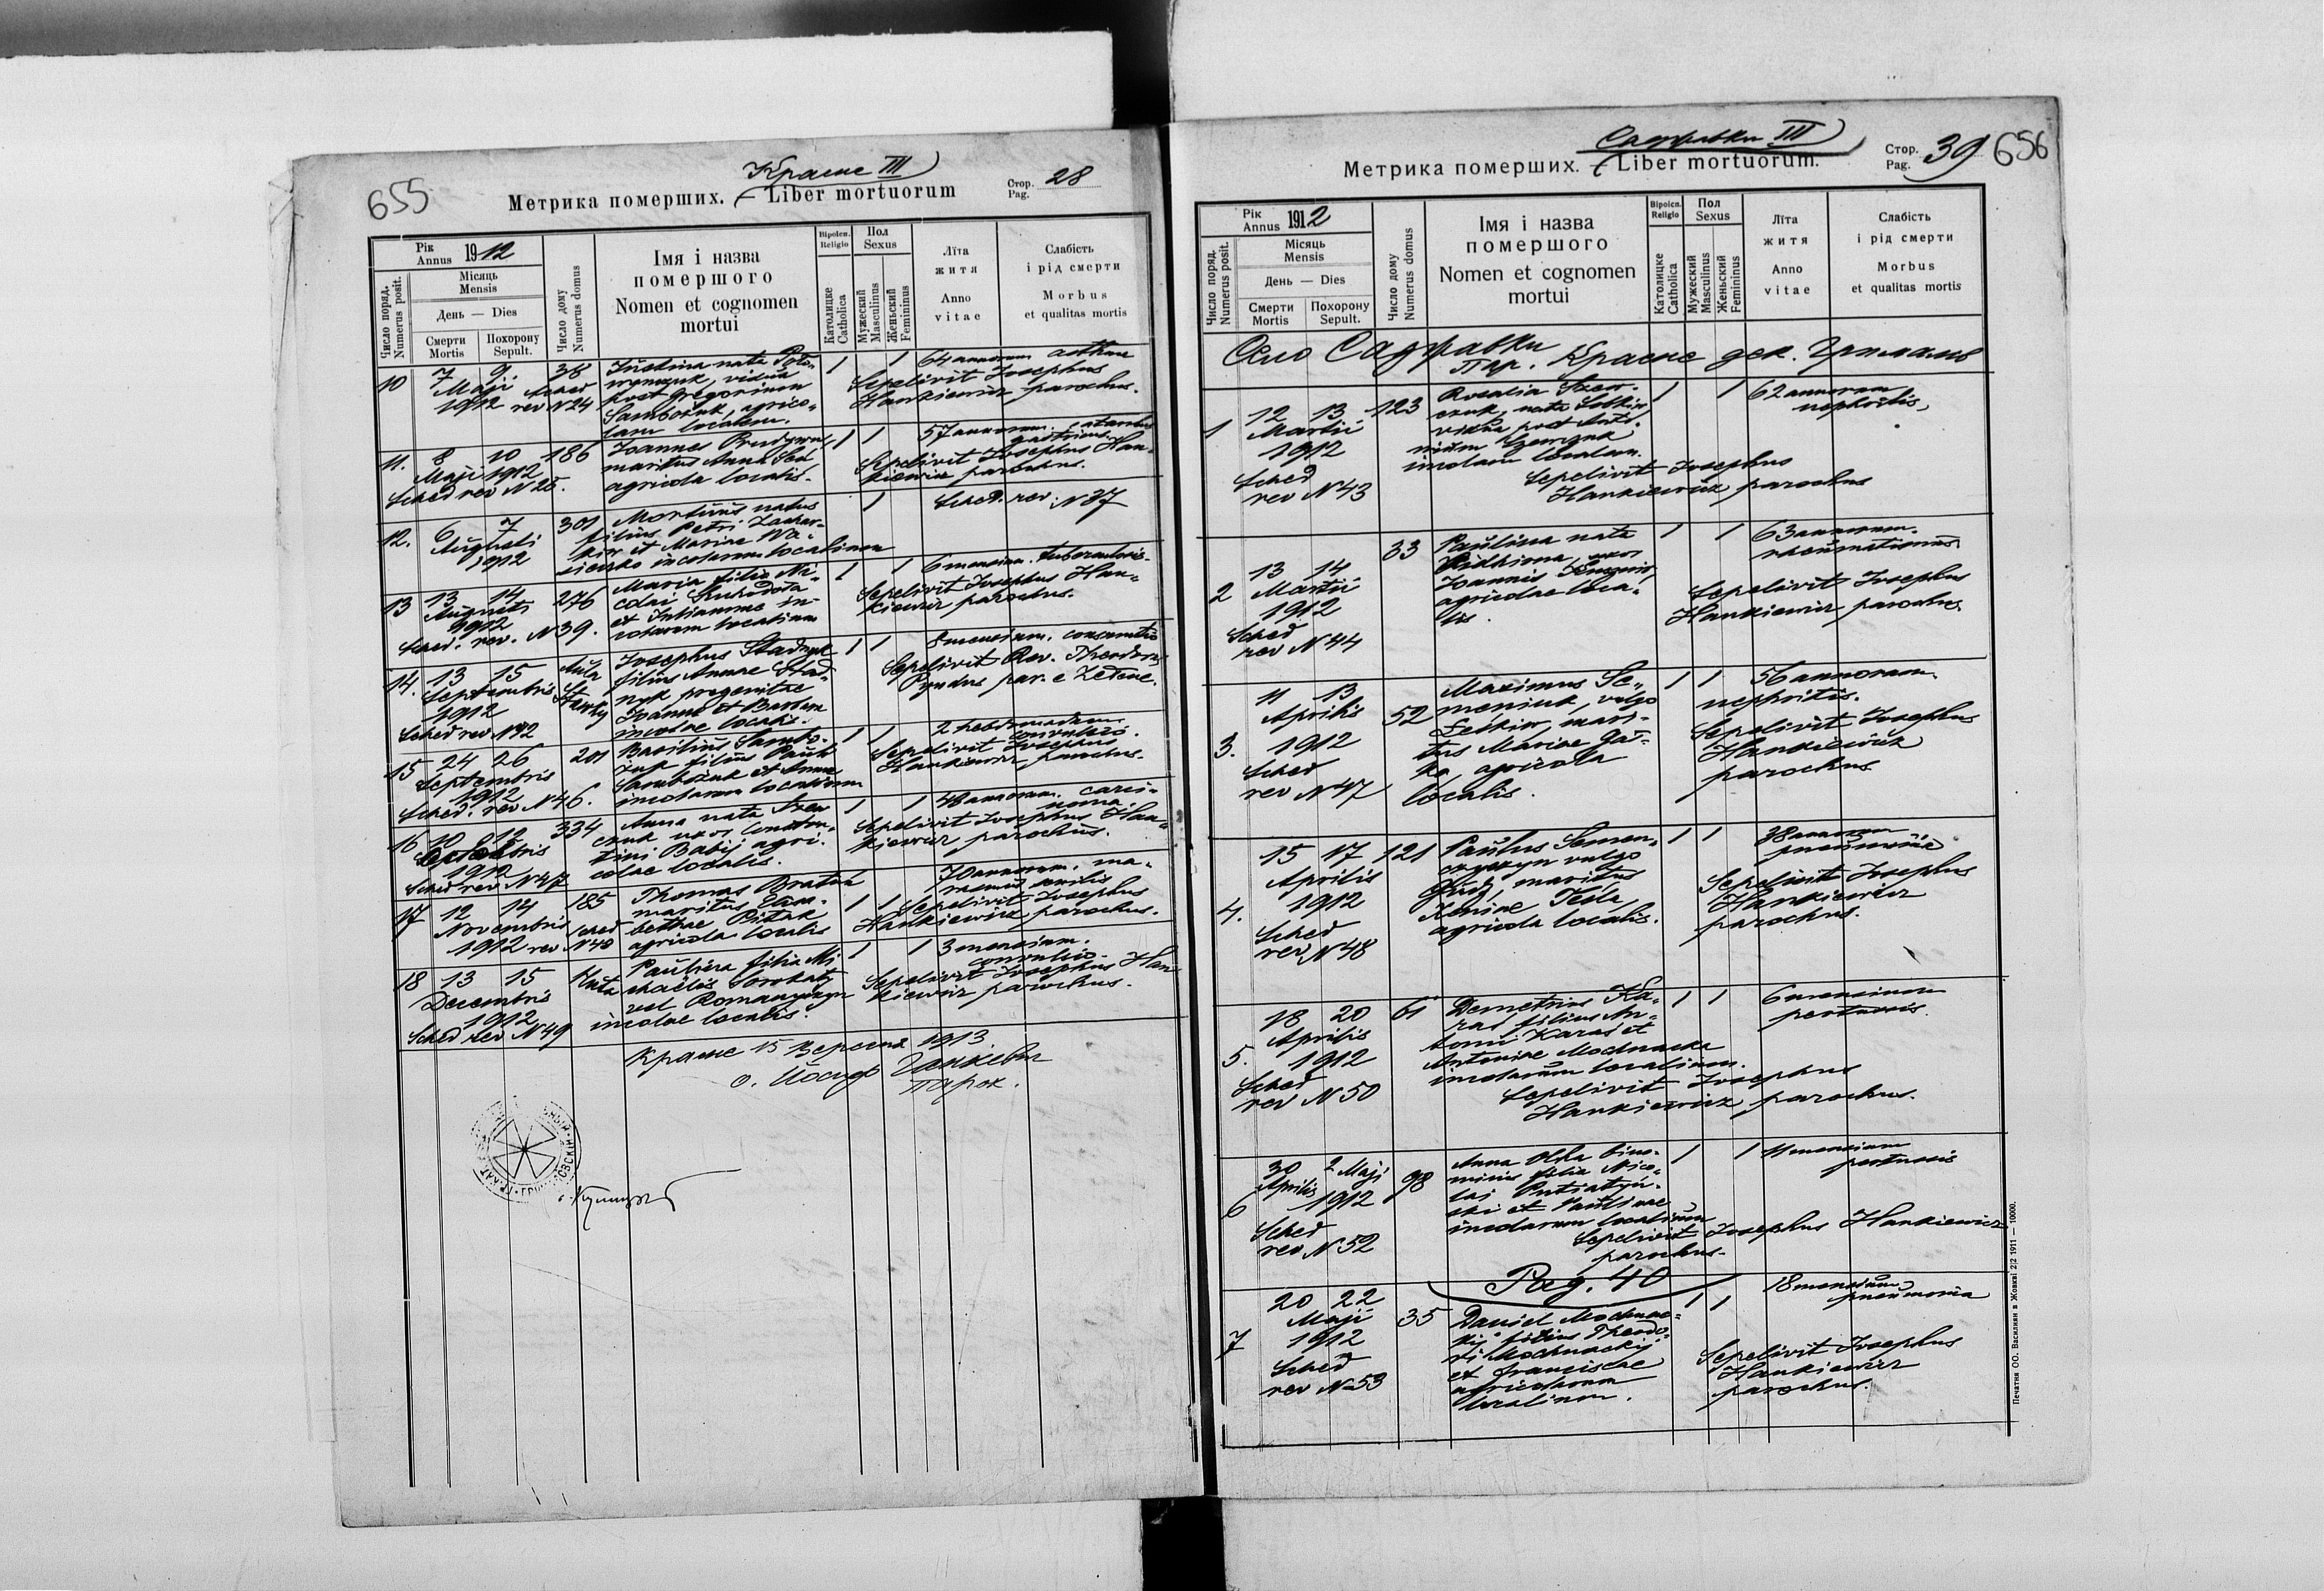 655
Красне III
Метрика померших. — Liber mortuorum
Стор. Pag. 28
Рік Annus 1912
Місяць Mensis
День — Dies
Смерти Mortis
Похорону Sepult.
Число поряд. Numerus posit.
Число дому Numerus domus
Імя і назва помершого
Nomen et cognomen mortui
Віроісп. Religio
Католицке Catholica
Пол Sexus
Мужеский Masculinus
Женьский Femininus
Літа житя
Anno vitae
Слабість і рід смерти
Morbus et qualitas mortis
10 7 9 Maji 1912 Sched rev N 24 38
Justina nata
vidua
post Gregorium
Sambożuk, agrico-
lam localem.
1 1 64 annorum
Sepelivit Josephus
Hankiewicz parochus.
11. 8 10 Maji 1912 186
Sched rev N 25.
Joannes
maritus Annae
agricola localis.
1 1 57 annorum. catarrhus
gastricus.
Sepelivit Josephus Han-
kiewicz parochus.
12. 6 7 Augusti 1912 301
Mortuus natus
filius Petri Zachar-
kiw et Mariae Wa-
sienko incolarum localium
1 Sched. rev. N 37
13 13 14 Augusti 1912 276
Sched. rev. N 39.
Maria filia Ni-
colai Suchodoła
et Julianne in-
colarum localium
1 1 6 mensium. tuberculosis.
Sepelivit Josephus Han-
kiewicz parochus.
14. 13 15 Septembris 1912
Sched rev N 42
Josephus Stadnyk
filius Annae Stad-
nyk progenitae
Joanne et Barbara
incolae localis.
1 1 8 mensium.
Sepelivit Rev. Theodorus
Pyndus par. e Zełene.
15 24 26 Septembris 1912 201
Sched. rev N 46.
Basilius Sambo-
żuk filius Pauli
Sambożuk et Annae
incolarum localium
1 1 2 hebdomadum
convulsio.
Sepelivit Josephus
Hankiewicz parochus.
16 10 12 1912 334
Sched rev N 47
Anna nata Szew
czuk uxor Constan-
tini Babij agri-
colae localis.
1 1 48 annorum. carci-
noma.
Sepelivit Josephus Han-
kiewicz, parochus.
17 12 14 Novembris 1912 185
Sched rev N 48
Thomas Bratuń
maritus Elisa-
bethae Pitak
agricola localis
1 1 70 annorum. ma-
rasmus senilis
Sepelivit Josephus
Hankiewicz parochus.
18 13 15 Decembris 1912 Huta
Sched rev N 49
Paulina filia Mi
chaëlis Sorokaty
vel Romanyszyn
incolae localis.
1 1 3 mensium.
convulsio.
Sepelivit Josephus Han
kiewicz parochus.
Красне 15 Вересня 1913
о. Йосиф Ганкевич
парох.
Саджавки III
Метрика померших. — Liber mortuorum.
Стор. Pag. 39 656
Рік Annus 1912
Місяць Mensis
День — Dies
Смерти Mortis
Похорону Sepult.
Число поряд. Numerus posit.
Число дому Numerus domus
Імя і назва помершого
Nomen et cognomen mortui
Віроісп. Religio
Католицке Catholica
Пол Sexus
Мужеский Masculinus
Женьский Femininus
Літа житя
Anno vitae
Слабість і рід смерти
Morbus et qualitas mortis
Село Саджавки
Пар. Красне дек. Грималів
1 12 13 Martii 1912 123
Sched rev N 43
Rosalia Szew-
czuk, nata Sobkiw
vidua post Anto-
nium Szewczuk
incolam localem.
1 1 62 annorum
nephritis
Sepelivit Josephus
Hankiewicz parochus
2 13 14 Martii 1912 33
Sched rev N 44
Paulina nata
uxor
Joannis
agricolae loca-
lis.
1 1 63 annorum.
rheumatismus
Sepelivit Josephus
Hankiewicz parochus.
3. 11 13 Aprilis 1912 52
Sched rev N 47
Maximus Se-
meniuk, vulgo
mari-
tus Mariae
agricola
localis.
1 1 56 annorum
nephritis.
Sepelivit Josephus
Hankiewicz
parochus
4. 15 17 Aprilis 1912 121
Sched rev N 48
Paulus Semen-
czyszyn vulgo
maritus
Xeniae Tesla
agricola localis.
1 1 38 annorum
pneumonia
Sepelivit Josephus
Hankiewicz
parochus.
5. 18 20 Aprilis 1912 61
Sched rev N 50
Demetrius Ka-
ras filius An-
tonii Karas et
Antoniae Mochnacka
incolarum localium.
1 1 6 mensium
pertussis.
Sepelivit Josephus
Hankiewicz parochus.
6 30 Aprilis 2 Maji 1912 98
Sched rev N 52
Anna Olha bino-
minis filia Nico-
lai Putiatyń-
ski et Paulinae
incolarum localium
1 1 11 mensium
pertussis
Sepelivit Josephus Hankiewicz
parochus.
Pag. 40
7 20 22 Maji 1912 35
Sched rev N 53
Daniel Mochnac-
kij filius Theodo-
ri Mochnackij
et Franciscae
agricolarum
localium.
1 1 18 mensium
pneumonia
Sepelivit Josephus
Hankiewicz
parochus.
Печатня ОО. Василиян в Жовкві 2|2 1911 — 10000.